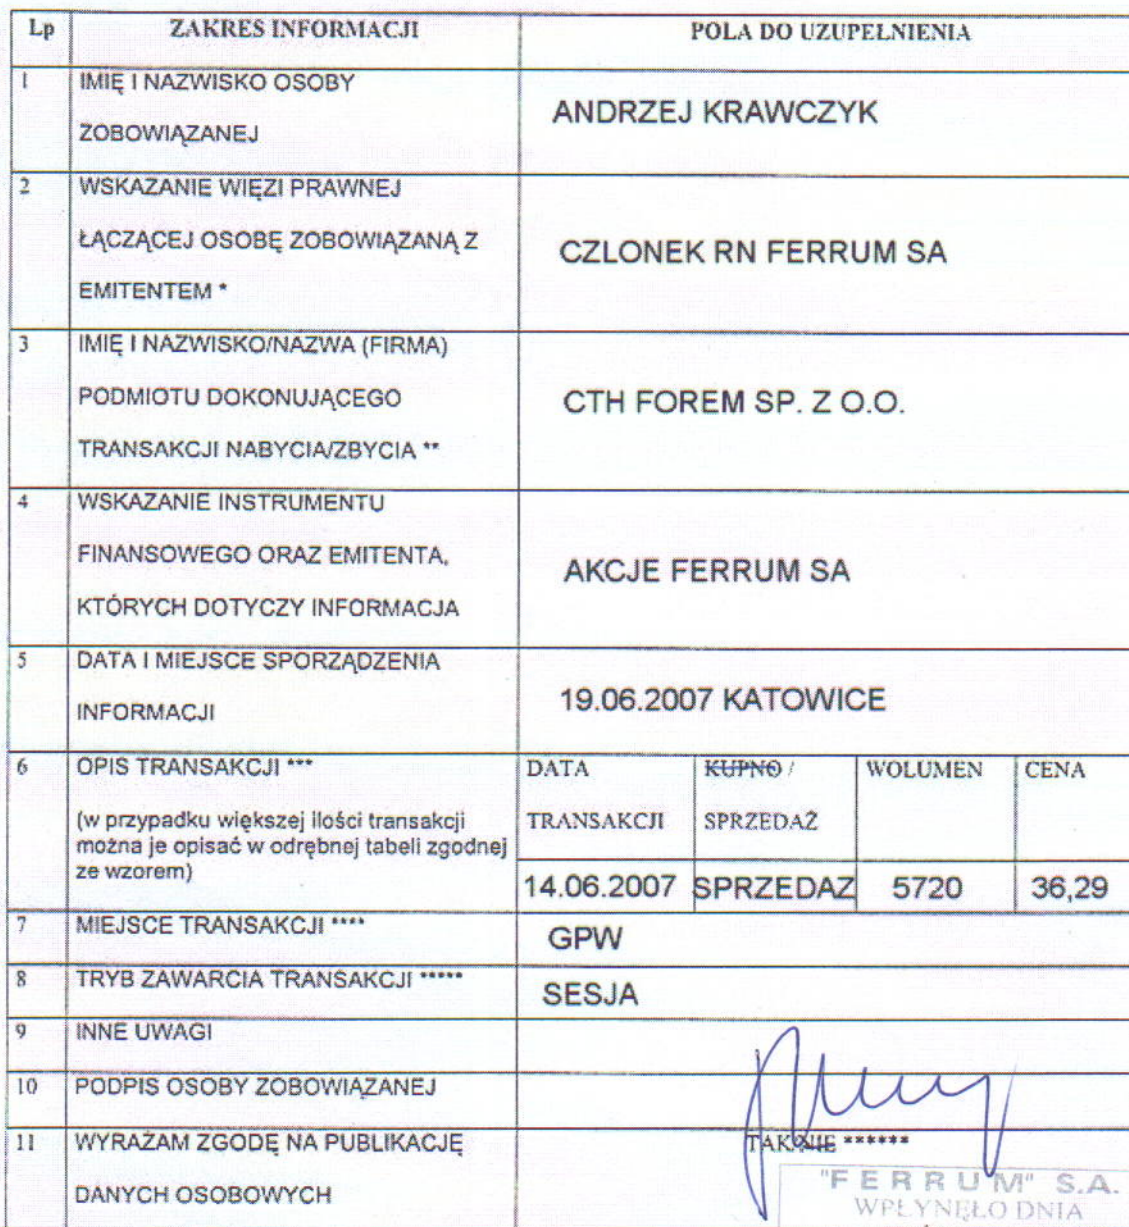 Lp ZAKRES INFORMACJI POLA DO UZUPEŁNIENIA
1 IMIĘ I NAZWISKO OSOBY
ZOBOWIĄZANEJ
ANDRZEJ KRAWCZYK
2 WSKAZANIE WIĘZI PRAWNEJ
ŁĄCZĄCEJ OSOBĘ ZOBOWIĄZANĄ Z
EMITENTEM *
CZLONEK RN FERRUM SA
3 IMIĘ I NAZWISKO/NAZWA (FIRMA)
PODMIOTU DOKONUJĄCEGO
TRANSAKCJI NABYCIA/ZBYCIA **
CTH FOREM SP. Z O.O.
4 WSKAZANIE INSTRUMENTU
FINANSOWEGO ORAZ EMITENTA,
KTÓRYCH DOTYCZY INFORMACJA
AKCJE FERRUM SA
5 DATA I MIEJSCE SPORZĄDZENIA
INFORMACJI
19.06.2007 KATOWICE
6 OPIS TRANSAKCJI ***
(w przypadku większej ilości transakcji
można je opisać w odrębnej tabeli zgodnej
ze wzorem)
DATA KUPNO / WOLUMEN CENA
TRANSAKCJI SPRZEDAŻ
14.06.2007 SPRZEDAZ 5720 36,29
7 MIEJSCE TRANSAKCJI ****
GPW
8 TRYB ZAWARCIA TRANSAKCJI *****
SESJA
9 INNE UWAGI
10 PODPIS OSOBY ZOBOWIĄZANEJ
11 WYRAŻAM ZGODĘ NA PUBLIKACJĘ
DANYCH OSOBOWYCH
TAK/NIE ******
"FERRUM" S.A.
WPŁYNĘŁO DNIA